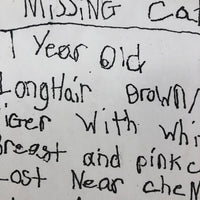 MISSING Cat
1 Year Old
LongHair Brown/
Tiger With Whi
Breast and pink c
Lost Near Che